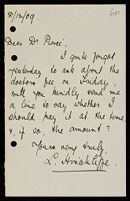 8/12/09.
Dear Dr. Pierce.
I quite forgot
yesterday to ask about the
doctors fee on Friday,
will you kindly send me
a line to say whether I
should pay it at the time
&, if so, the amount?
Yours very truly,
L.